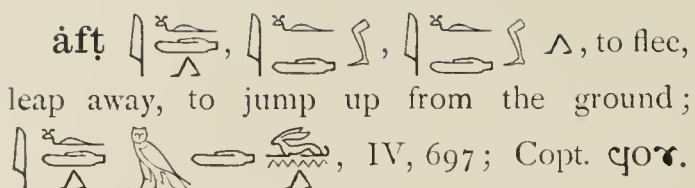 ȧfṭ 𓇋𓆑𓂧𓂻, 𓇋𓆑𓂧𓂾, 𓇋𓆑𓂧𓂾 𓂻, to flee,
leap away, to jump up from the ground;
𓇋𓆑𓂧𓂻𓅓𓂋𓃹𓈖𓂻, IV, 697; Copt. ϥⲟⲩ.